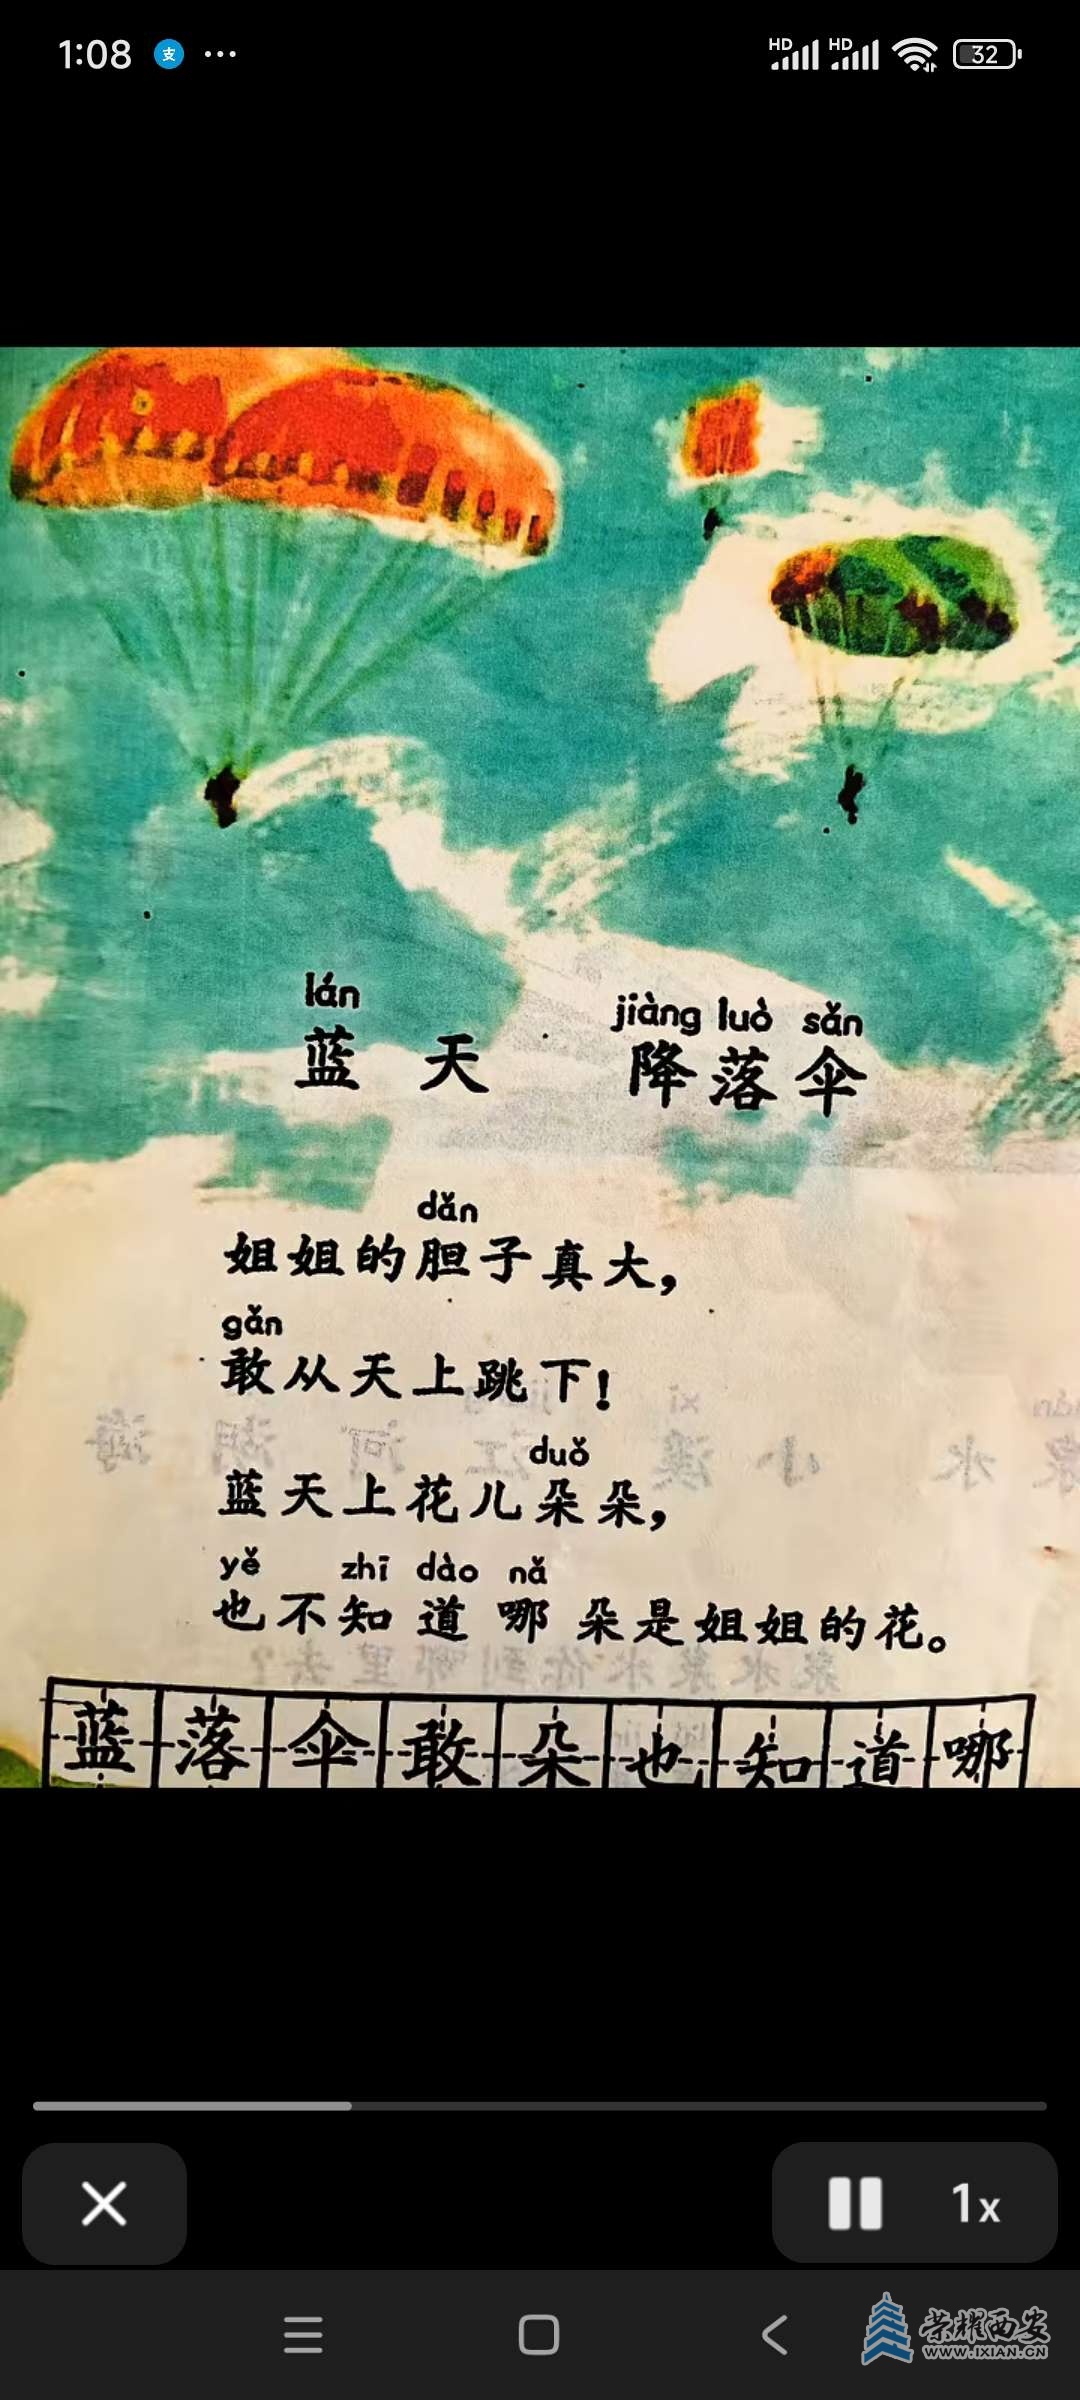 1:08 支 ··· HD HD 32
lán jiàng luò sǎn
蓝 天 降落伞
dǎn
姐姐的胆子真大，
gǎn
敢从天上跳下！
duǒ
蓝天上花儿朵朵，
yě zhī dào nǎ
也不知道哪朵是姐姐的花。
蓝 落 伞 敢 朵 也 知 道 哪
1x
荣耀西安
WWW.IXIAN.CN